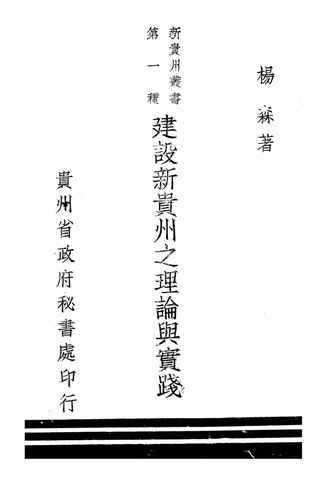 楊森著
新貴州叢書
第一種
建設新貴州之理論與實踐
貴州省政府秘書處印行